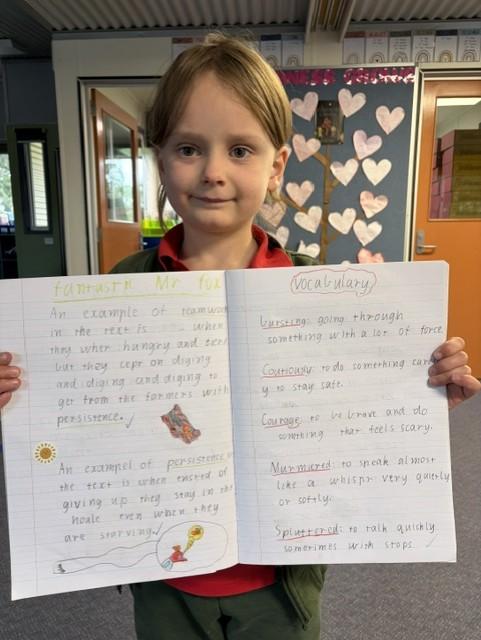 fantastic Mr fox
An example of teamwork
in the text is when
they wher hungry and
but they cept on diging
and diging and diging to
get from the farmers with
persistence.
An exampel of persistence
the text is when ensted of
giving up they stay in the
hoale even when they
are starving
Vocabulary
bursting: going through
something with a lot of force
Coutiously: to do something
y to stay safe.
Courage: to be brave and do
something that feels scary.
Murmered: to speak almost
like a whispr very quietly
or softly.
Spluttered: to talk quickly
sometimes with stops.